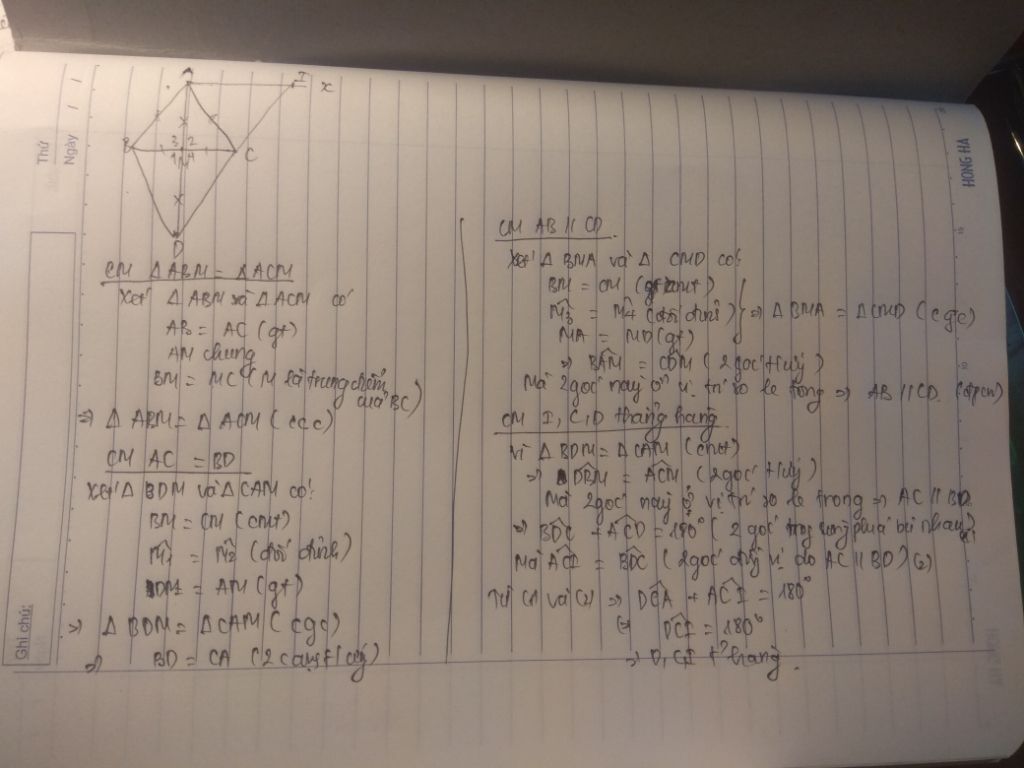 Thứ
Ngày
HONG HA
Ghi chú:
A
I
x
B
3 2
1 4
M
C
D
CM Δ ABM = Δ ACM
Xét Δ ABM và Δ ACM có
AB = AC (gt)
AM chung
BM = MC (M là trung điểm
của BC)
=> Δ ABM = Δ ACM (ccc)
CM AC = BD
Xét Δ BDM và Δ CAM có:
BM = CM (cmt)
M̂1 = M̂2 (đối đỉnh)
DM = AM (gt)
=> Δ BDM = Δ CAM (cgc)
=> BD = CA (2 cạnh t/ứng)
CM AB // CD
Xét Δ BMA và Δ CMD có:
BM = CM (cmt)
M̂3 = M̂4 (đối đỉnh) => Δ BMA = Δ CMD (cgc)
MA = MD (gt)
=> BÂM = CD̂M (2 góc t/ứng)
Mà 2 góc này ở vị trí so le trong => AB // CD (đpcm)
CM I, C, D thẳng hàng
Vì Δ BDM = Δ CAM (cmt)
=> DB̂M = AĈM (2 góc t/ứng)
Mà 2 góc này ở vị trí so le trong => AC // BD
=> BD̂C + AĈD = 180° (2 góc trong cùng phía bù nhau)
Mà AĈI = BD̂C (2 góc đồng vị do AC // BD) (2)
Từ (1) và (2) => DĈA + AĈI = 180°
(=) DĈI = 180°
=> D, C, I t? hàng